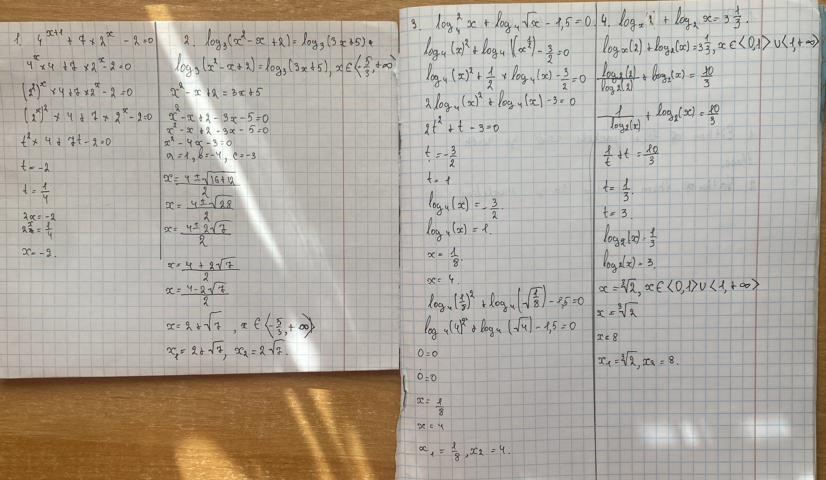 1. 4^(x+1) + 7 × 2^x - 2 = 0
4^x × 4 + 7 × 2^x - 2 = 0
(2²)^x × 4 + 7 × 2^x - 2 = 0
(2^x)² × 4 + 7 × 2^x - 2 = 0
t² × 4 + 7t - 2 = 0
t = -2
t = 1/4
2x = -2
2^x = 1/4
x = -2.
2. log₃(x² - x + 2) = log₃(3x + 5)
log₃(x² - x + 2) = log₃(3x + 5), x ∈ ⟨-5/3, +∞⟩
x² - x + 2 = 3x + 5
x² - x + 2 - 3x - 5 = 0
x² - x + 2 - 3x - 5 = 0
x² - 4x - 3 = 0
a = 1, b = -4, c = -3
x = (4 ± √(16 + 12))/2
x = (4 ± √28)/2
x = (4 ± 2√7)/2
x = (4 + 2√7)/2
x = (4 - 2√7)/2
x = 2 + √7, x ∈ ⟨-5/3, +∞⟩
x₁ = 2 + √7, x₂ = 2√7.
3. log₄² x + log₄ √x - 1,5 = 0.
log₄(x)² + log₄(x^(1/2)) - 3/2 = 0
log₄(x)² + 1/2 × log₄(x) - 3/2 = 0
2 log₄(x)² + log₄(x) - 3 = 0
2t² + t - 3 = 0
t = -3/2
t = 1
log₄(x) = -3/2
log₄(x) = 1.
x = 1/8
x = 4.
log₄(1/8)² + log₄(√(1/8)) - 1,5 = 0
log₄(4)² + log₄(√4) - 1,5 = 0
0 = 0
0 = 0
x = 1/8
x = 4
x₁ = 1/8, x₂ = 4.
4. logₓ 2 + log₂ x = 3 1/3.
logₓ(2) + log₂(x) = 3 1/3, x ∈ ⟨0,1⟩ ∪ ⟨1, +∞⟩
log₂(2)/log₂(x) + log₂(x) = 10/3
1/log₂(x) + log₂(x) = 10/3
1/t + t = 10/3
t = 1/3
t = 3.
log₂(x) = 1/3
log₂(x) = 3.
x = ³√2, x ∈ ⟨0,1⟩ ∪ ⟨1, +∞⟩
x = ³√2
x = 8
x₁ = ³√2, x₂ = 8.